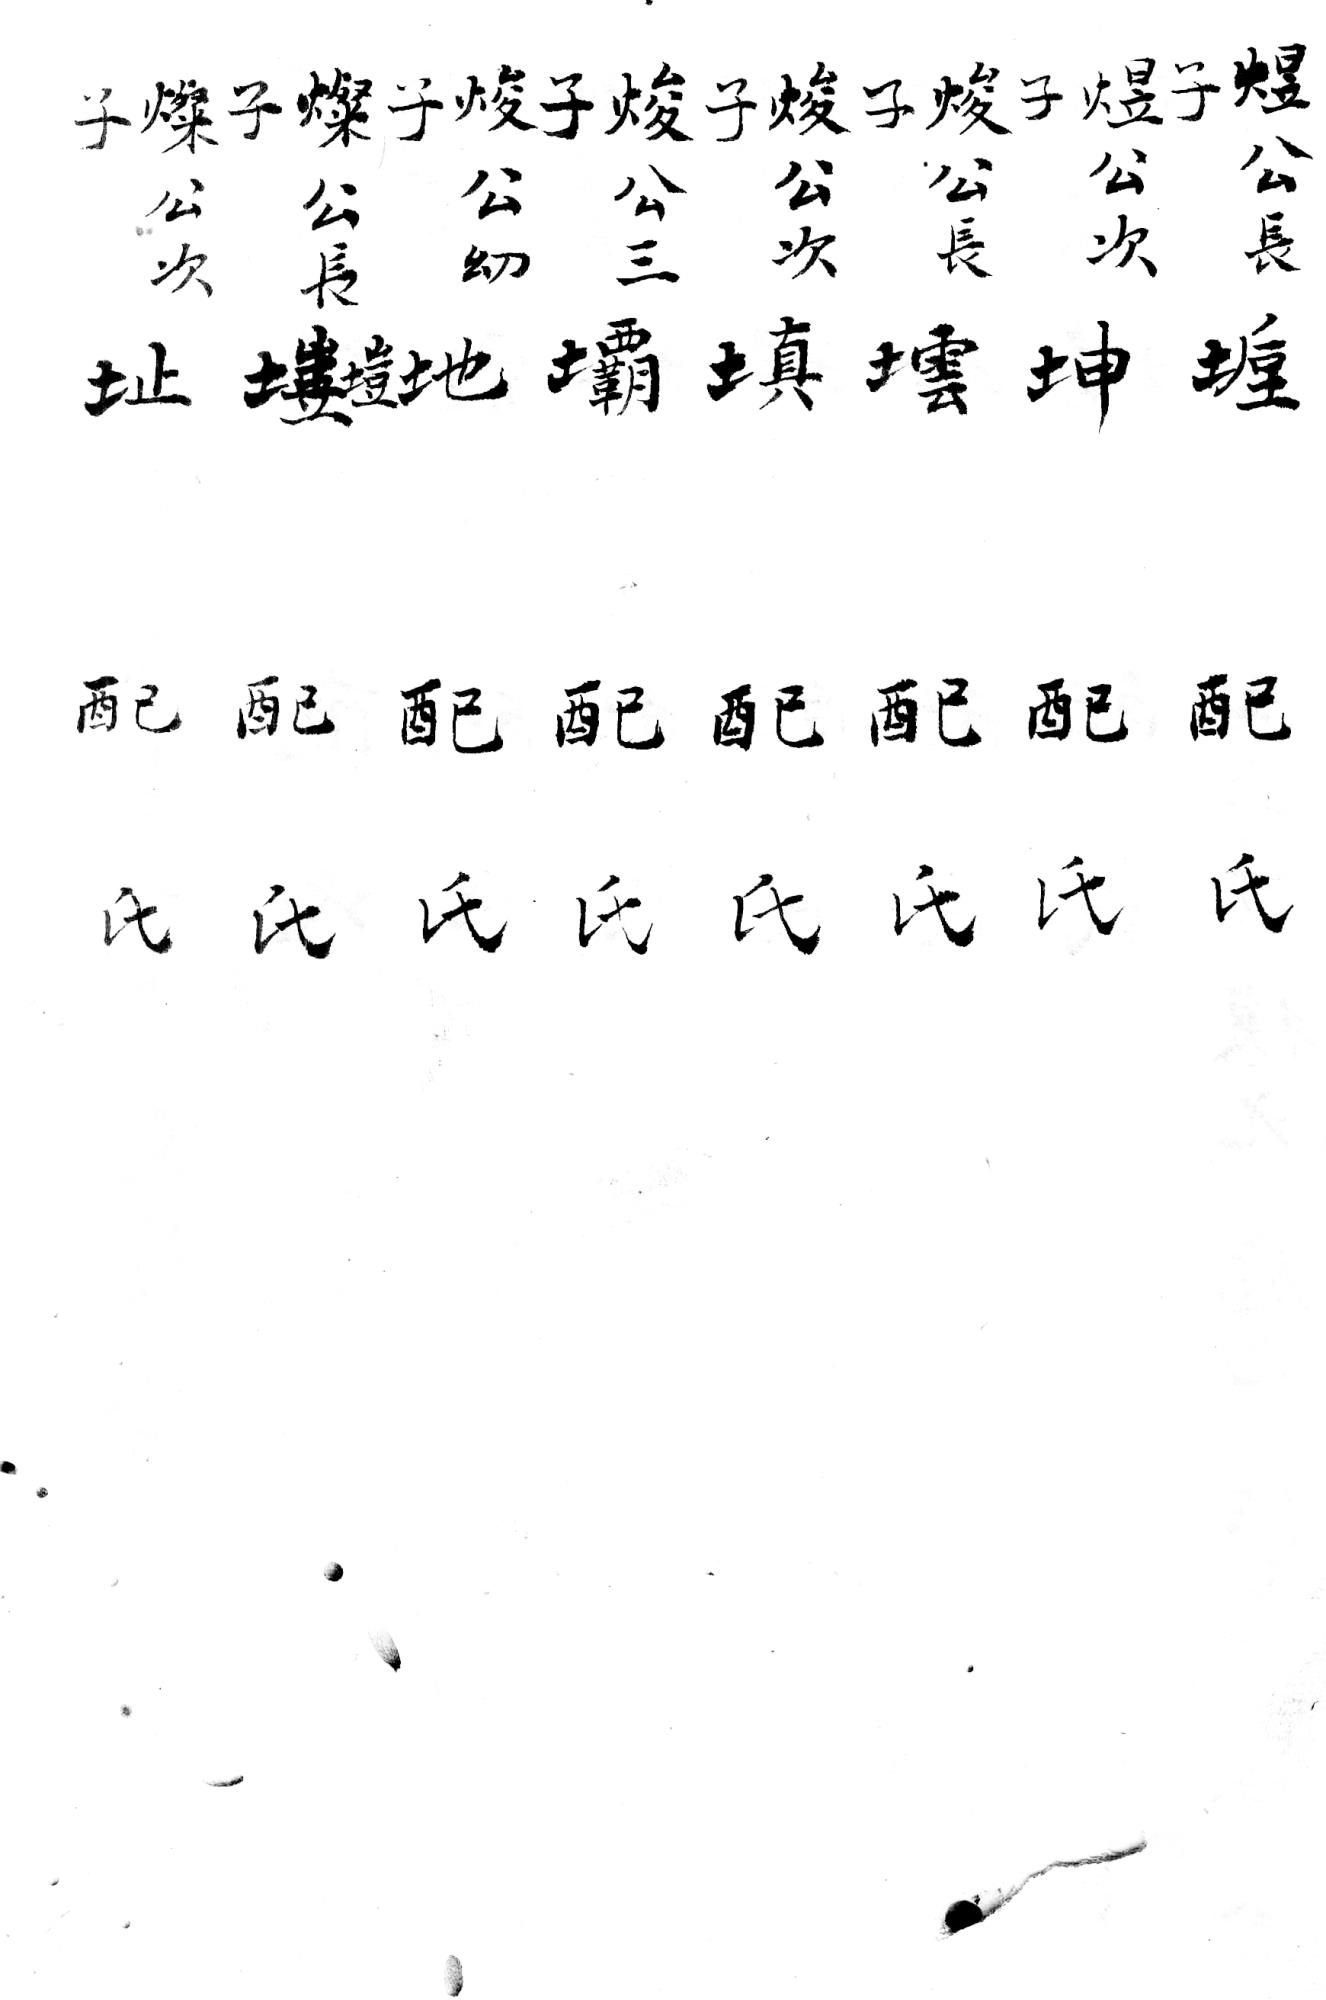 煜公長子 堙 配 氏
煜公次子 坤 配 氏
焌公長子 壖 配 氏
焌公次子 填 配 氏
焌公三子 壩 配 氏
焌公幼子 地 配 氏
燦公長子 塏 配 氏
燦公次子 址 配 氏